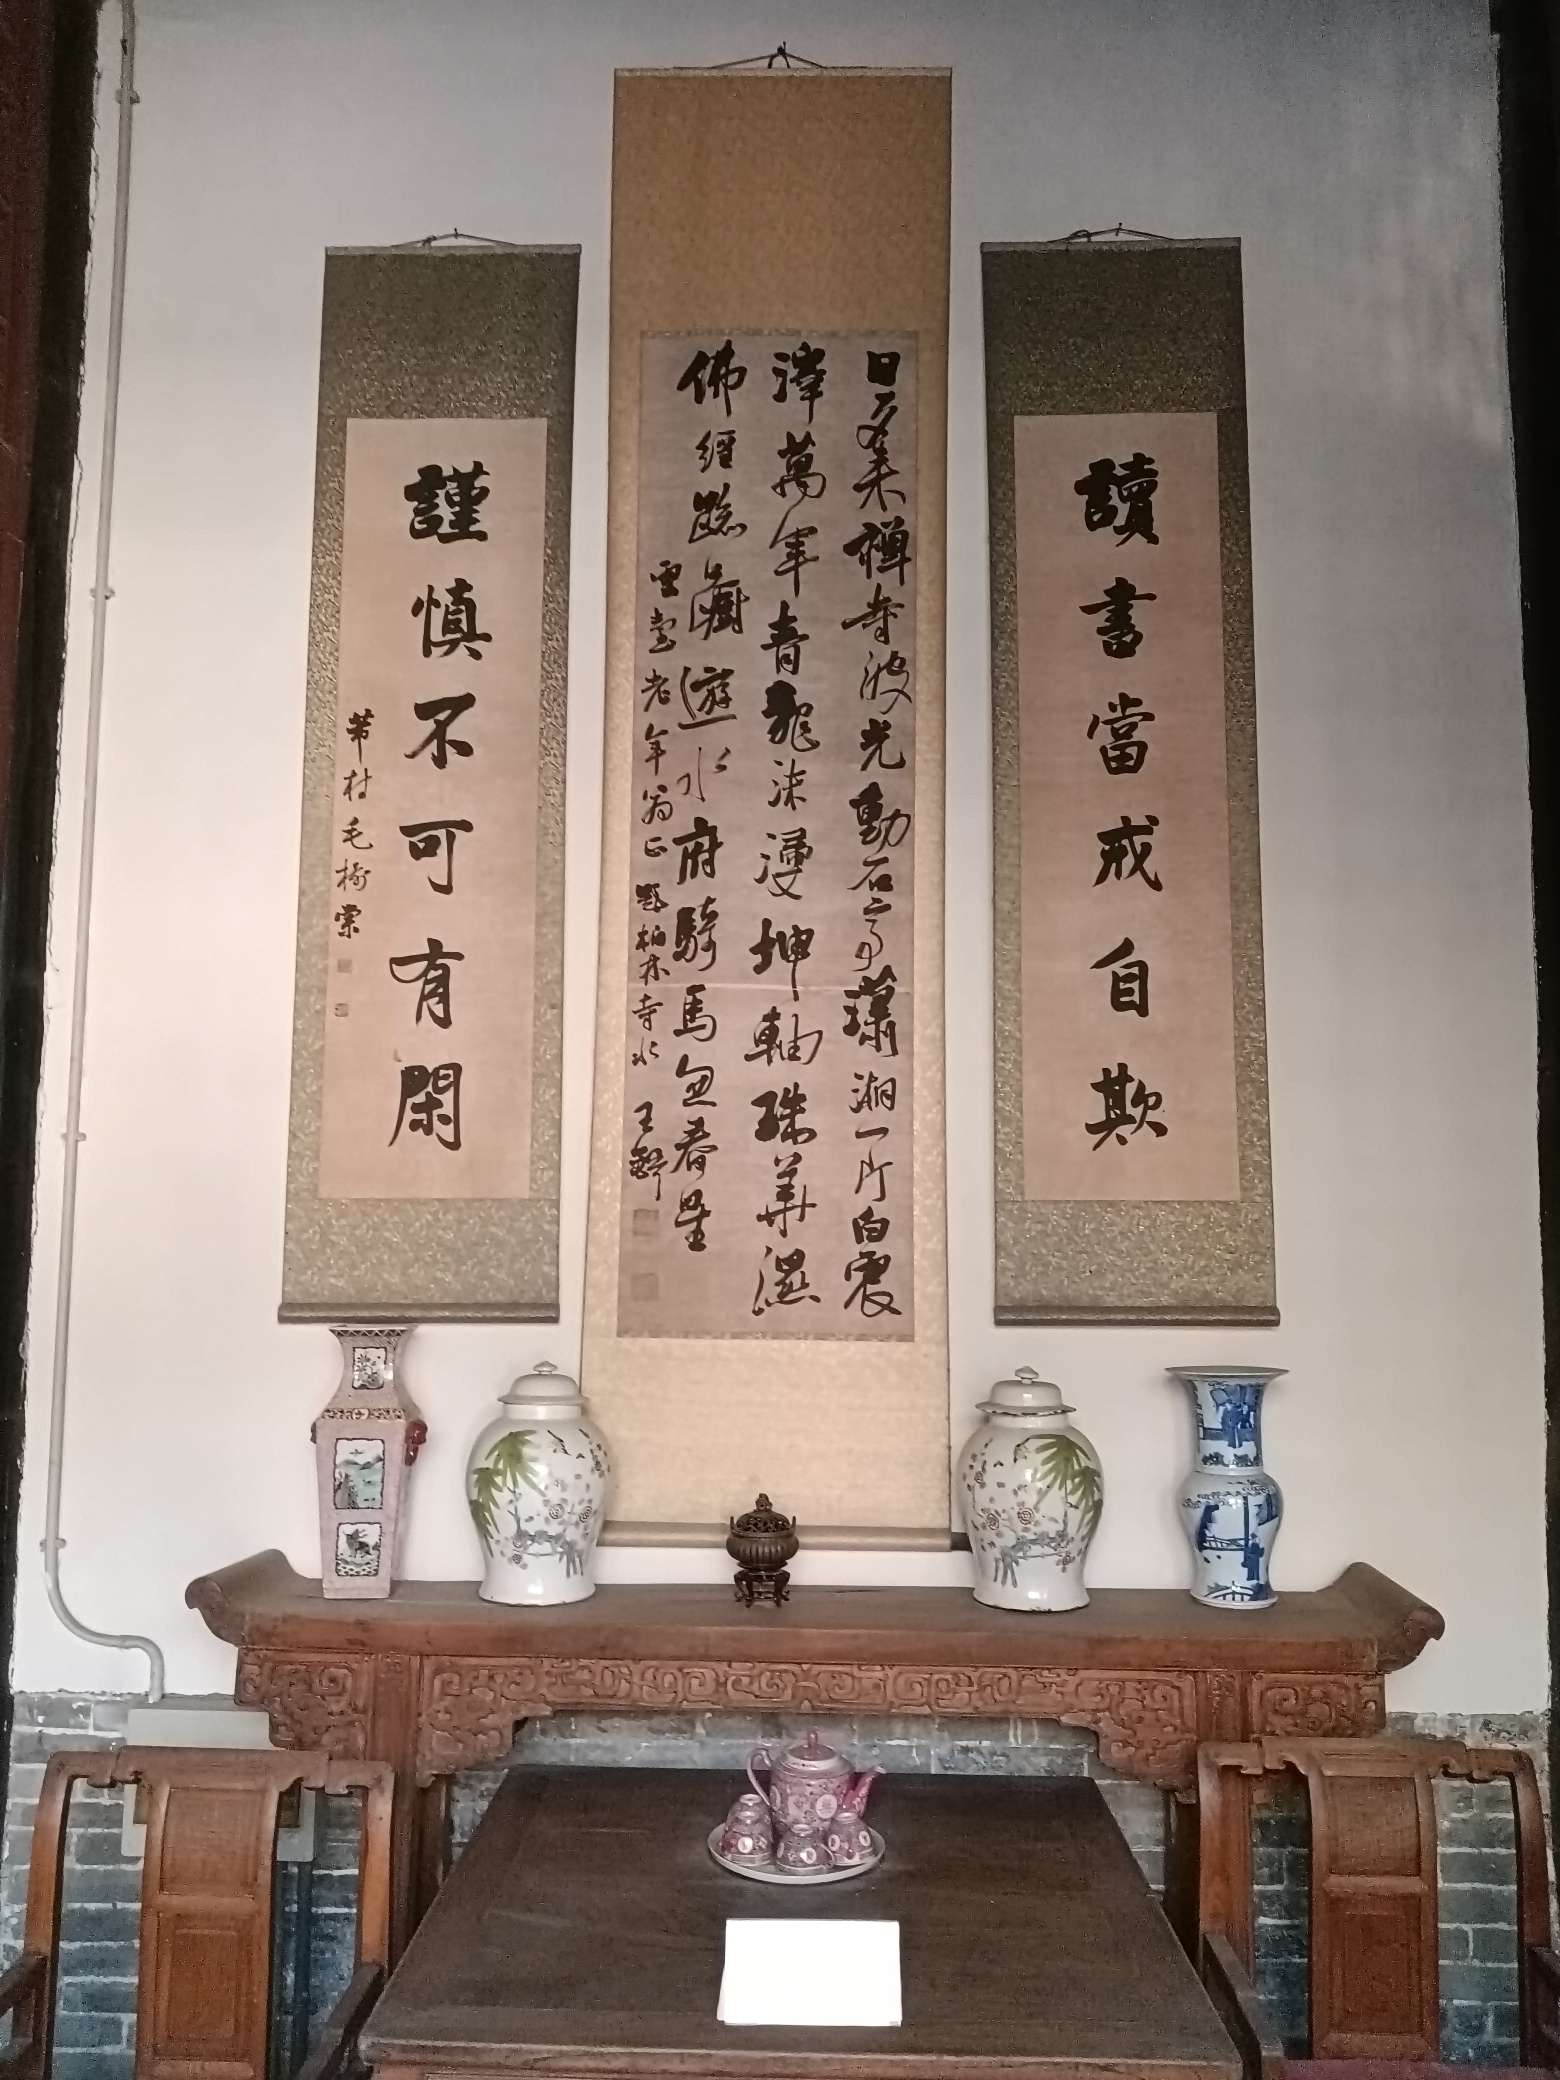 讀書當戒自欺
日夕來禪寺波光動石亭瀟湘一片白震
澤萬年青龍沫漫坤軸珠華濕
佛經蹤遊水府騎馬忽春星
雪臺老年翁正題柏林寺水
王鐸
謹慎不可有閑
毛棠